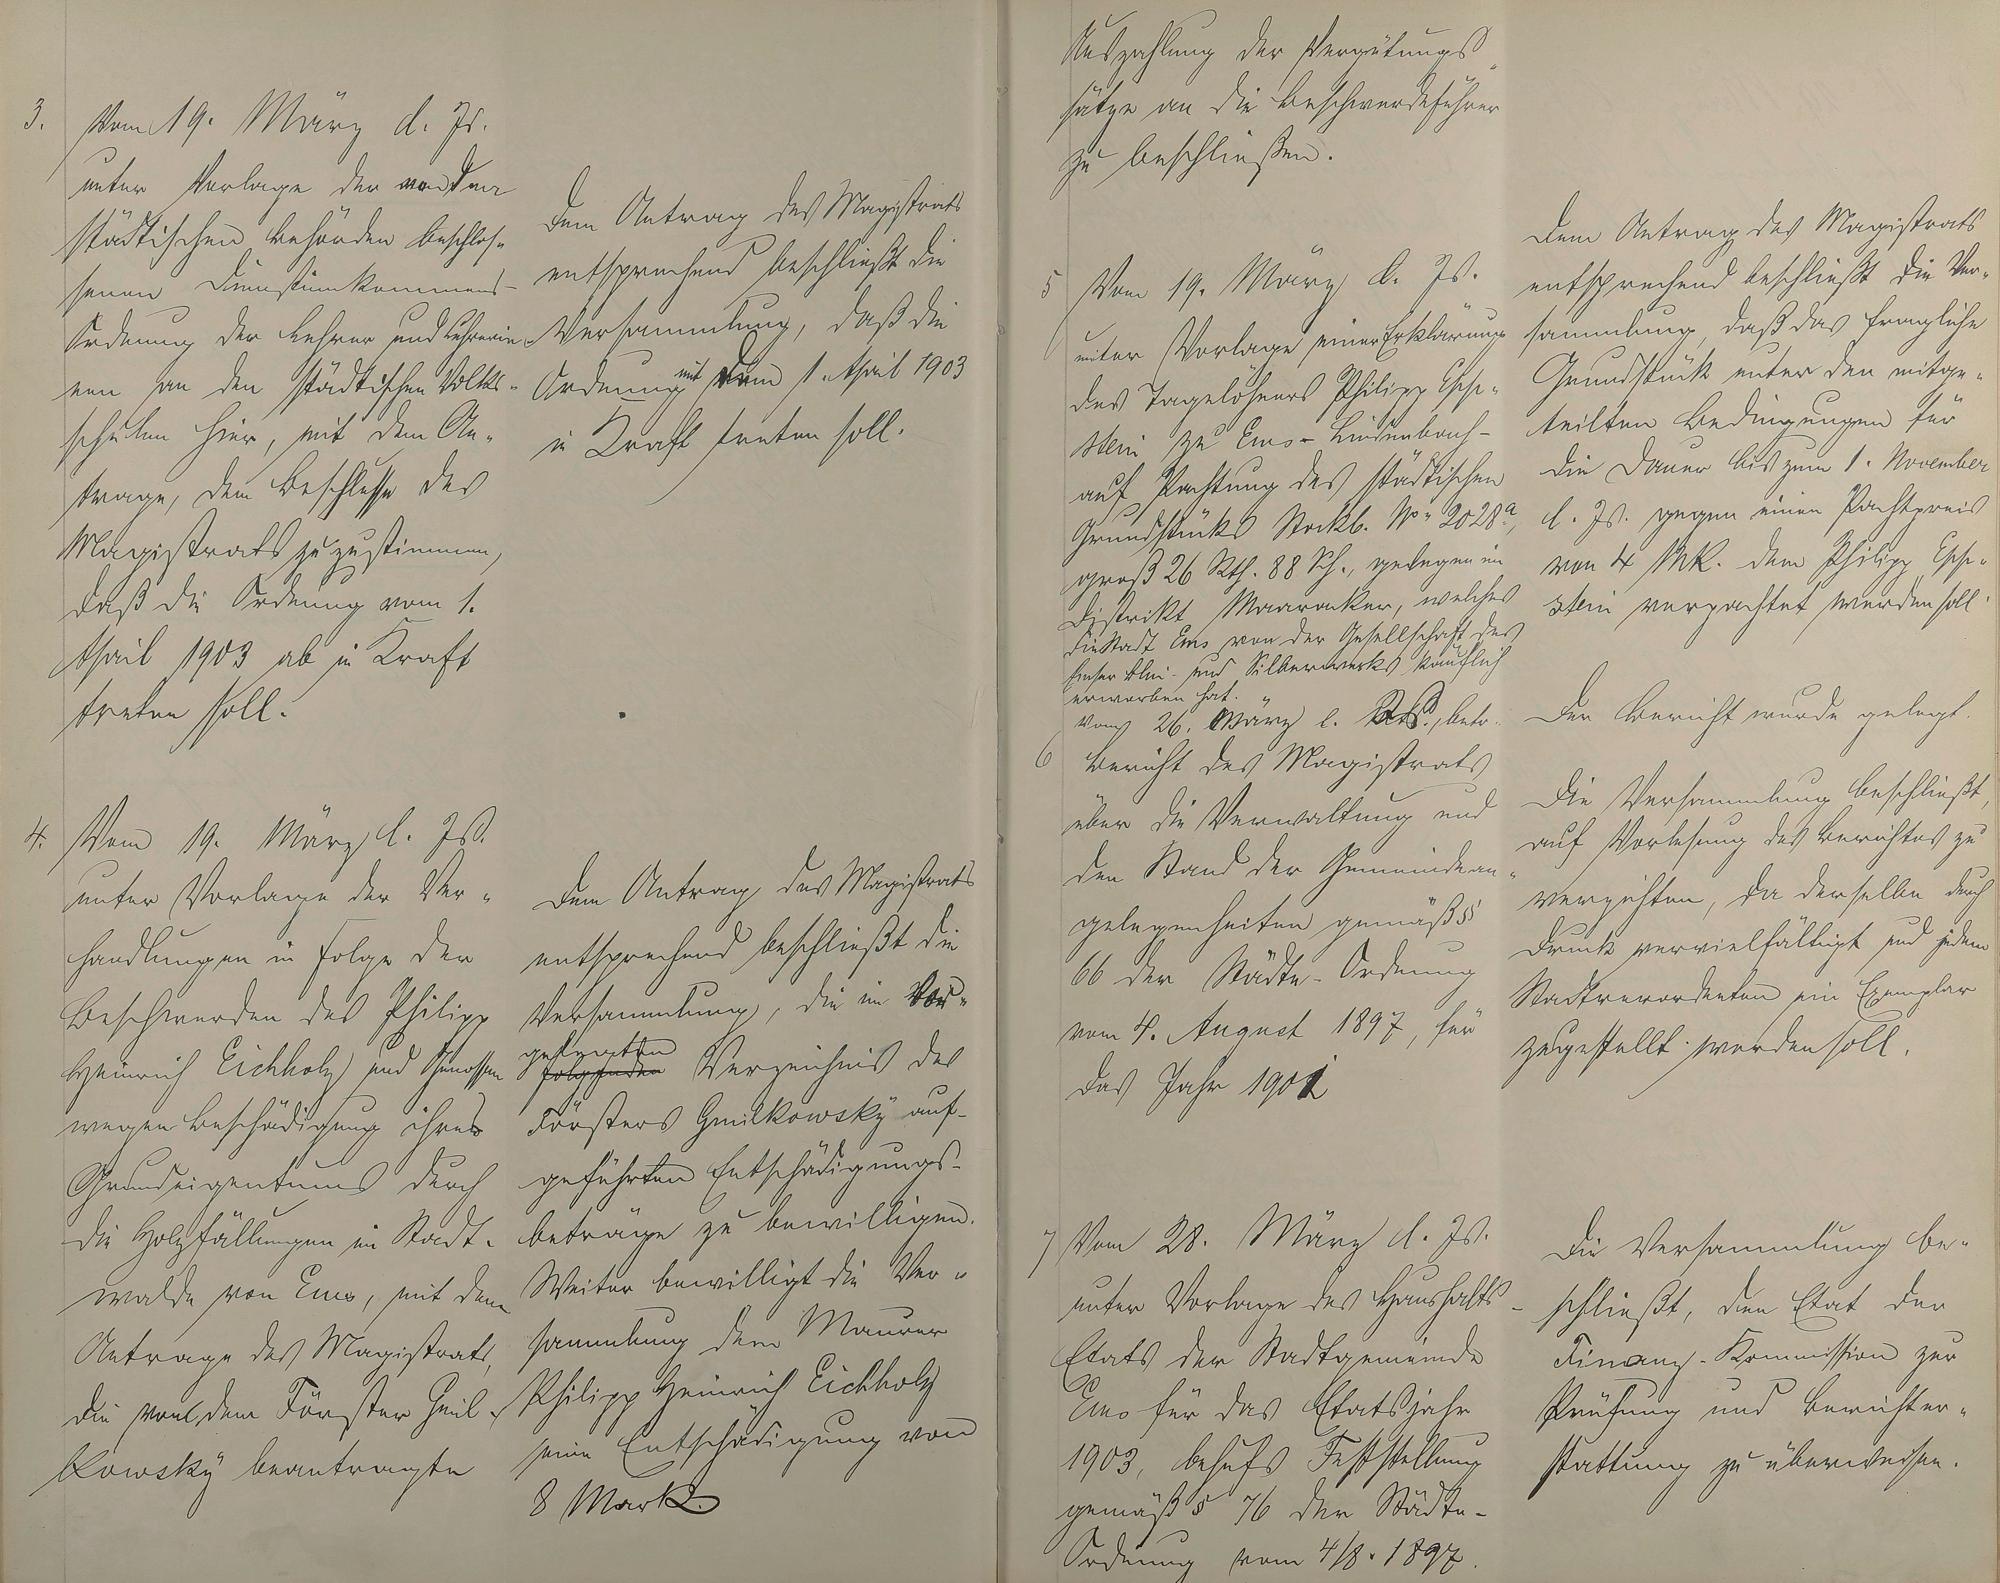 3. Vom 19. März d. Js.
unter Vorlage der von den
städtischen Behörden beschlos-
senen Diensteinkommens-
Ordnung der Lehrer und Lehrerin-
nen an den städtischen Volks-
schulen hier, mit dem An-
trage, dem Beschlusse des
Magistrats zuzustimmen,
daß die Ordnung vom 1.
April 1903 ab in Kraft
treten soll.
Dem Antrag des Magistrats
entsprechend beschließt die
Versammlung, daß die
Ordnung mit dem 1. April 1903
in Kraft treten soll.
4. Vom 19. März l. Js.
unter Vorlage der Ver-
handlungen in Folge der
Beschwerden des Philipp
Heinrich Eichholz und Genossen
wegen Beschädigung ihres
Grundeigentums durch
die Holzfällungen im Stadt-
walde von Ems, mit dem
Antrage des Magistrats,
die von dem Förster Gmil-
kowsky beantragte
Dem Antrag des Magistrats
entsprechend beschließt die
Versammlung, die im Vor-
gelegten
folgenden Verzeichnis des
Försters Gmilkowsky auf-
geführten Entschädigungs-
beträge zu bewilligen.
Weiter bewilligt die Ver-
sammlung dem Maurer
Philipp Heinrich Eichholz
eine Entschädigung von
8 Mark.
Auszahlung der Vergütungs-
sätze an die Beschwerdeführer
zu beschließen.
5 Vom 19. März d. Js.
unter Vorlage einer Erklärung
des Tagelöhners Philipp Eppe-
stein zu Ems-Lindenbach-
auf Pachtung des städtischen
Grundstücks Stockb. No. 2028a,
groß 26 Rth. 88 Sch., gelegen im
Distrikt Maaracker, welches
die Stadt Ems von der Gesellschaft des
Emser Blei- und Silberwerks käuflich
erworben hat.
Dem Antrag des Magistrats
entsprechend beschließt die Ver-
sammlung, daß das fragliche
Grundstück unter den mitge-
teilten Bedingungen für
die Dauer bis zum 1. November
l. Js. gegen einen Pachtpreis
von 4 Mk. dem Philipp Eppe-
stein verpachtet werden soll.
6 Vom 26. März l. Js., betr.
Bericht des Magistrats
über die Verwaltung und
den Stand der Gemeindean-
gelegenheiten gemäß §
66 der Städte-Ordnung
vom 4. August 1897, für
das Jahr 1901
Der Bericht wurde gelegt.
Die Versammlung beschließt,
auf Vorlesung des Berichtes zu
verzichten, da derselbe durch
Druck vervielfältigt und jedem
Stadtverordneten ein Exemplar
zugestellt werden soll.
7 Vom 28. März d. Js.
unter Vorlage des Haushalts-
Etats der Stadtgemeinde
Ems für das Etatsjahr
1903, behufs Feststellung
gemäß § 76 der Städte-
Ordnung vom 4/8. 1897.
Die Versammlung be-
schließt, den Etat der
Finanz-Kommission zur
Prüfung und Berichter-
stattung zu überweisen.